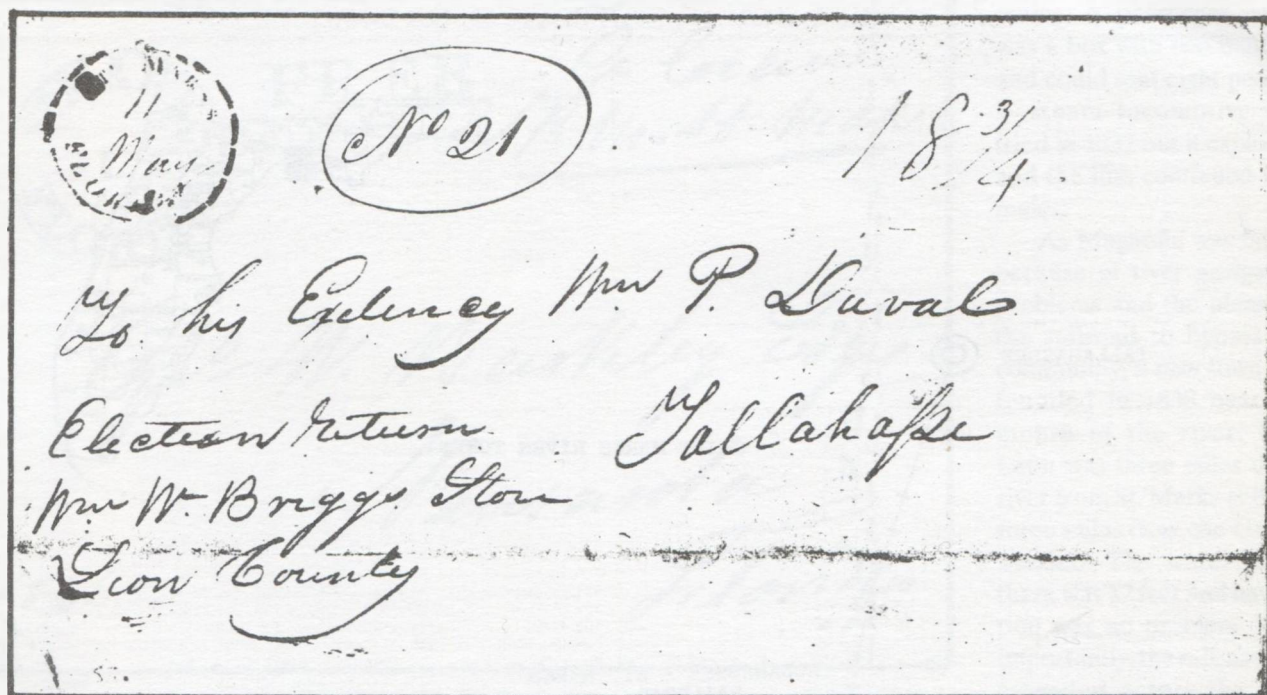 11
May
No 21
18 3/4
To his Exelencey Wm P. Duval
Tallahaſse
Election return
Wm W. Briggs Store
Leon County